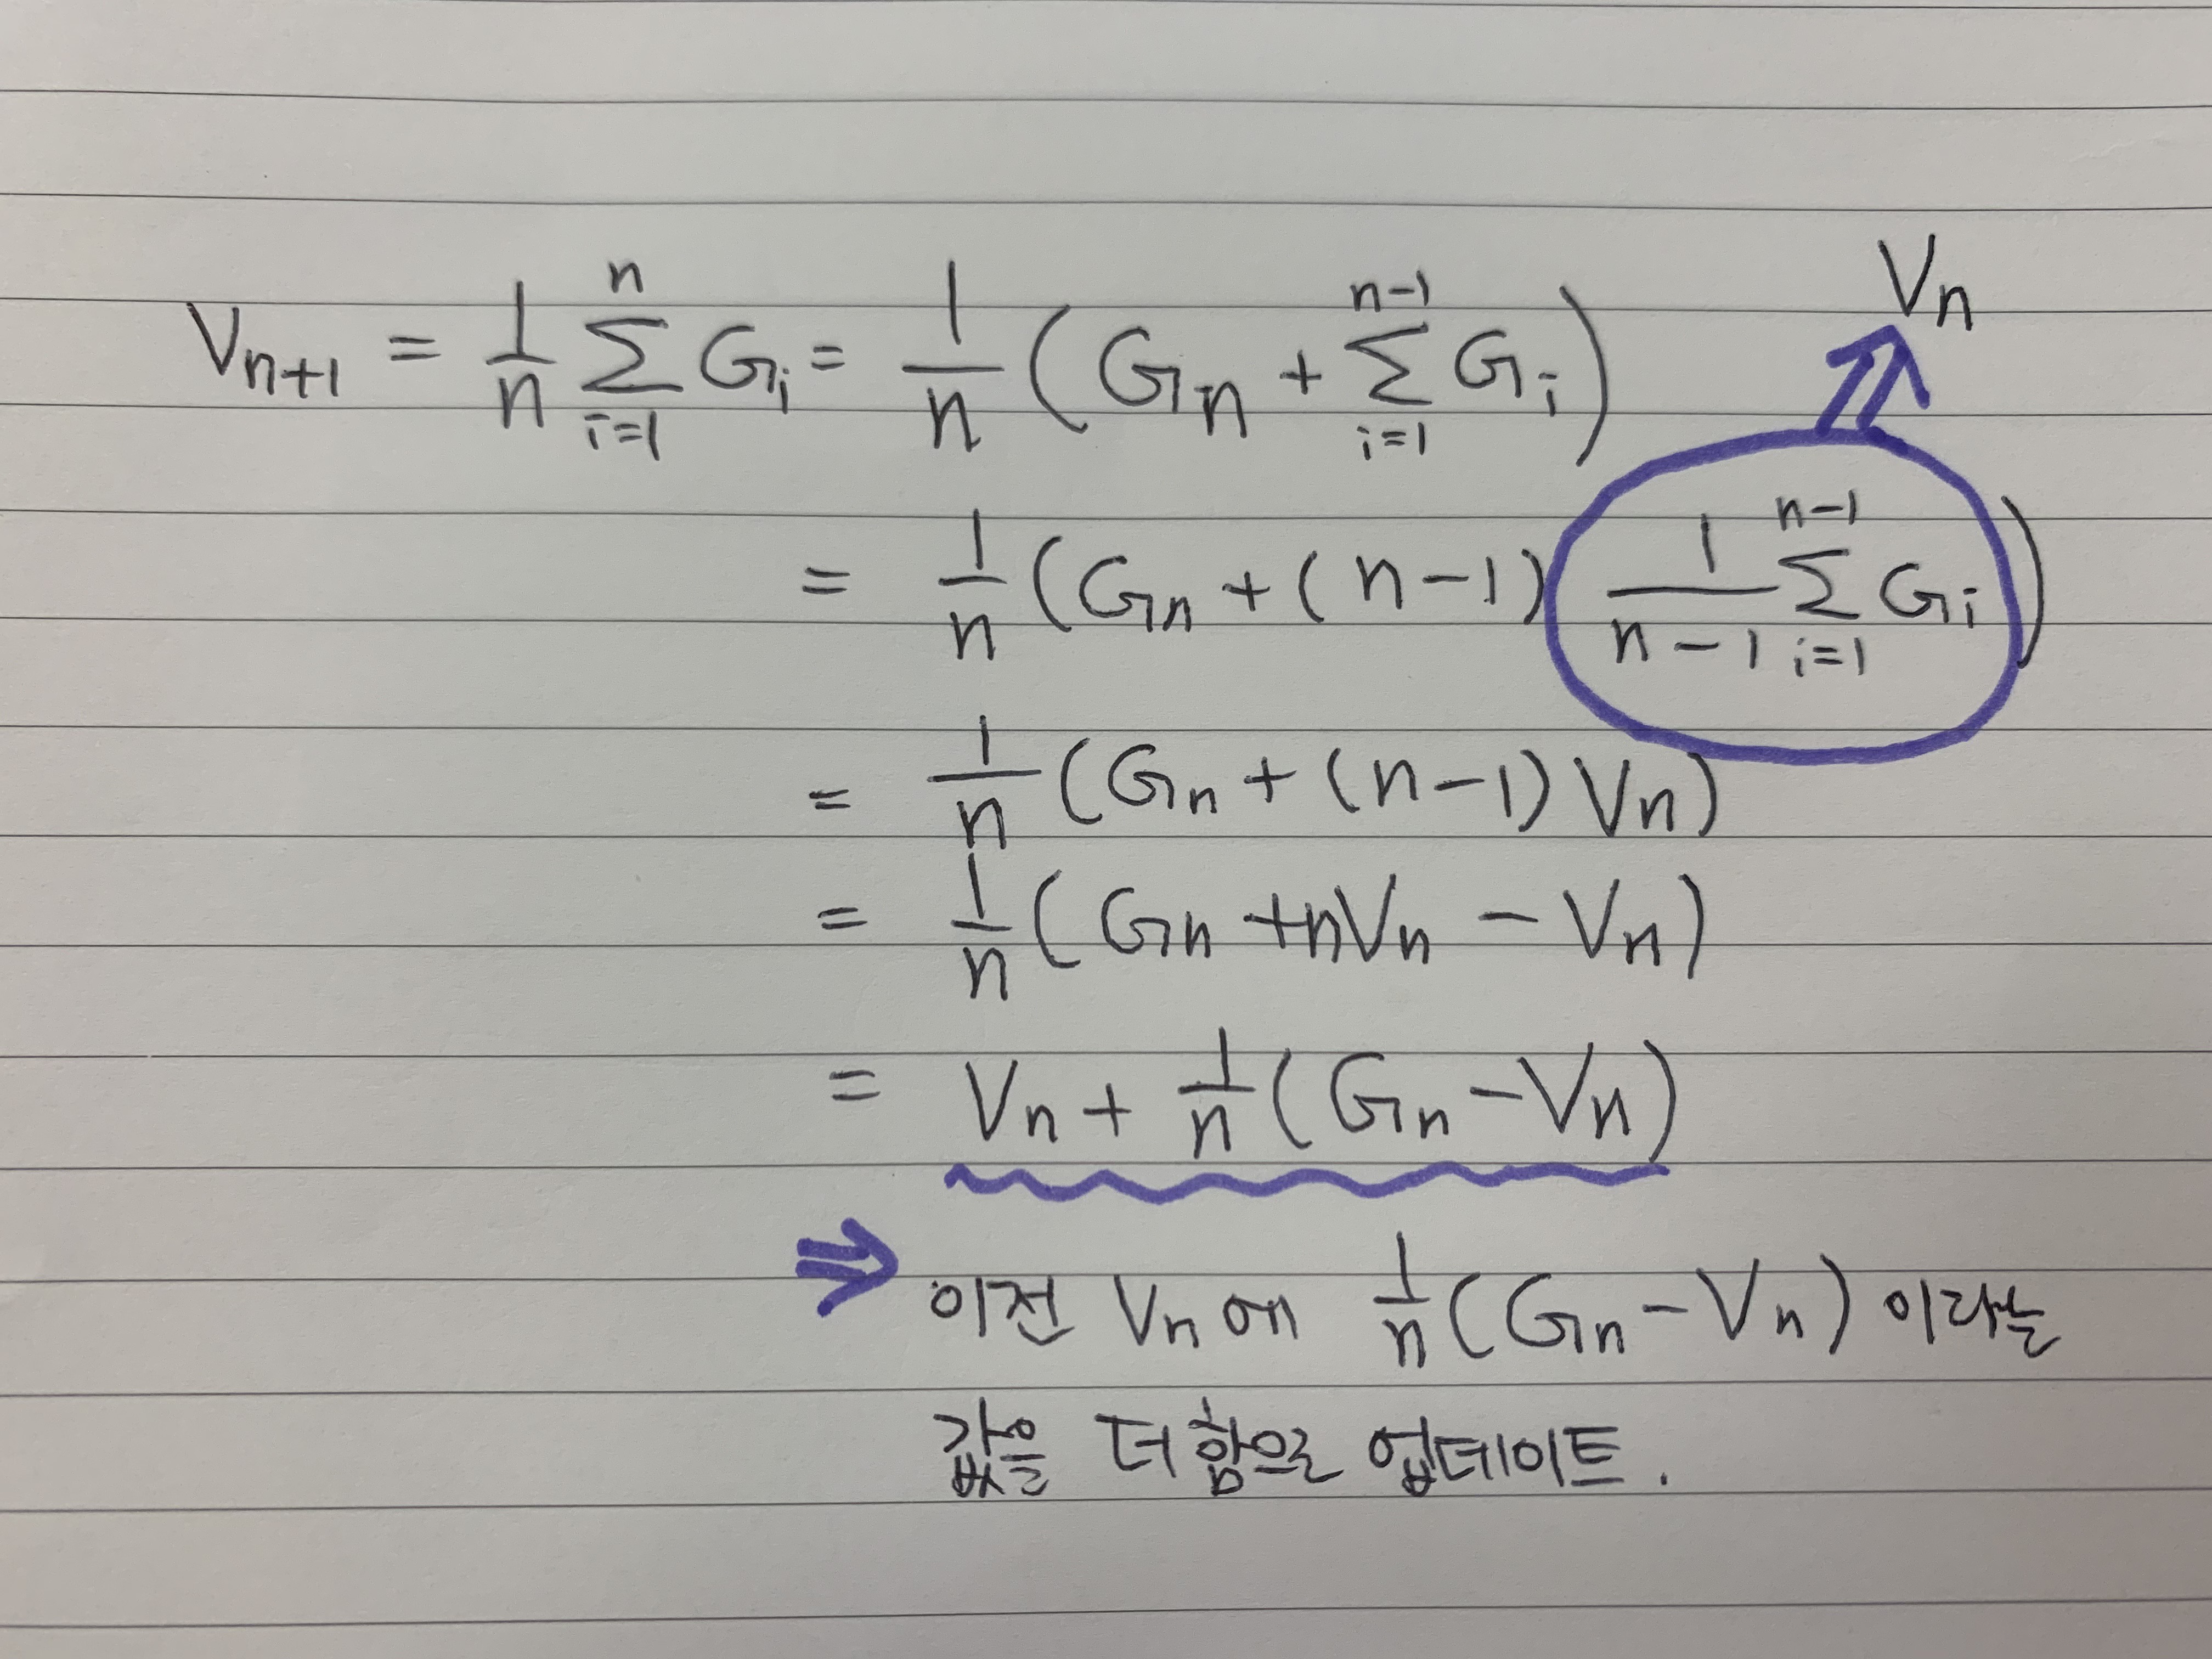 V_{n+1} = \frac{1}{n} \sum_{i=1}^{n} G_i = \frac{1}{n} ( G_n + \sum_{i=1}^{n-1} G_i )
V_n
= \frac{1}{n} ( G_n + (n-1) \frac{1}{n-1} \sum_{i=1}^{n-1} G_i )
= \frac{1}{n} ( G_n + (n-1) V_n )
= \frac{1}{n} ( G_n + nV_n - V_n )
= V_n + \frac{1}{n} ( G_n - V_n )
⇒ 이전 V_n 에 \frac{1}{n} ( G_n - V_n ) 이라는
값을 더함으로 업데이트.